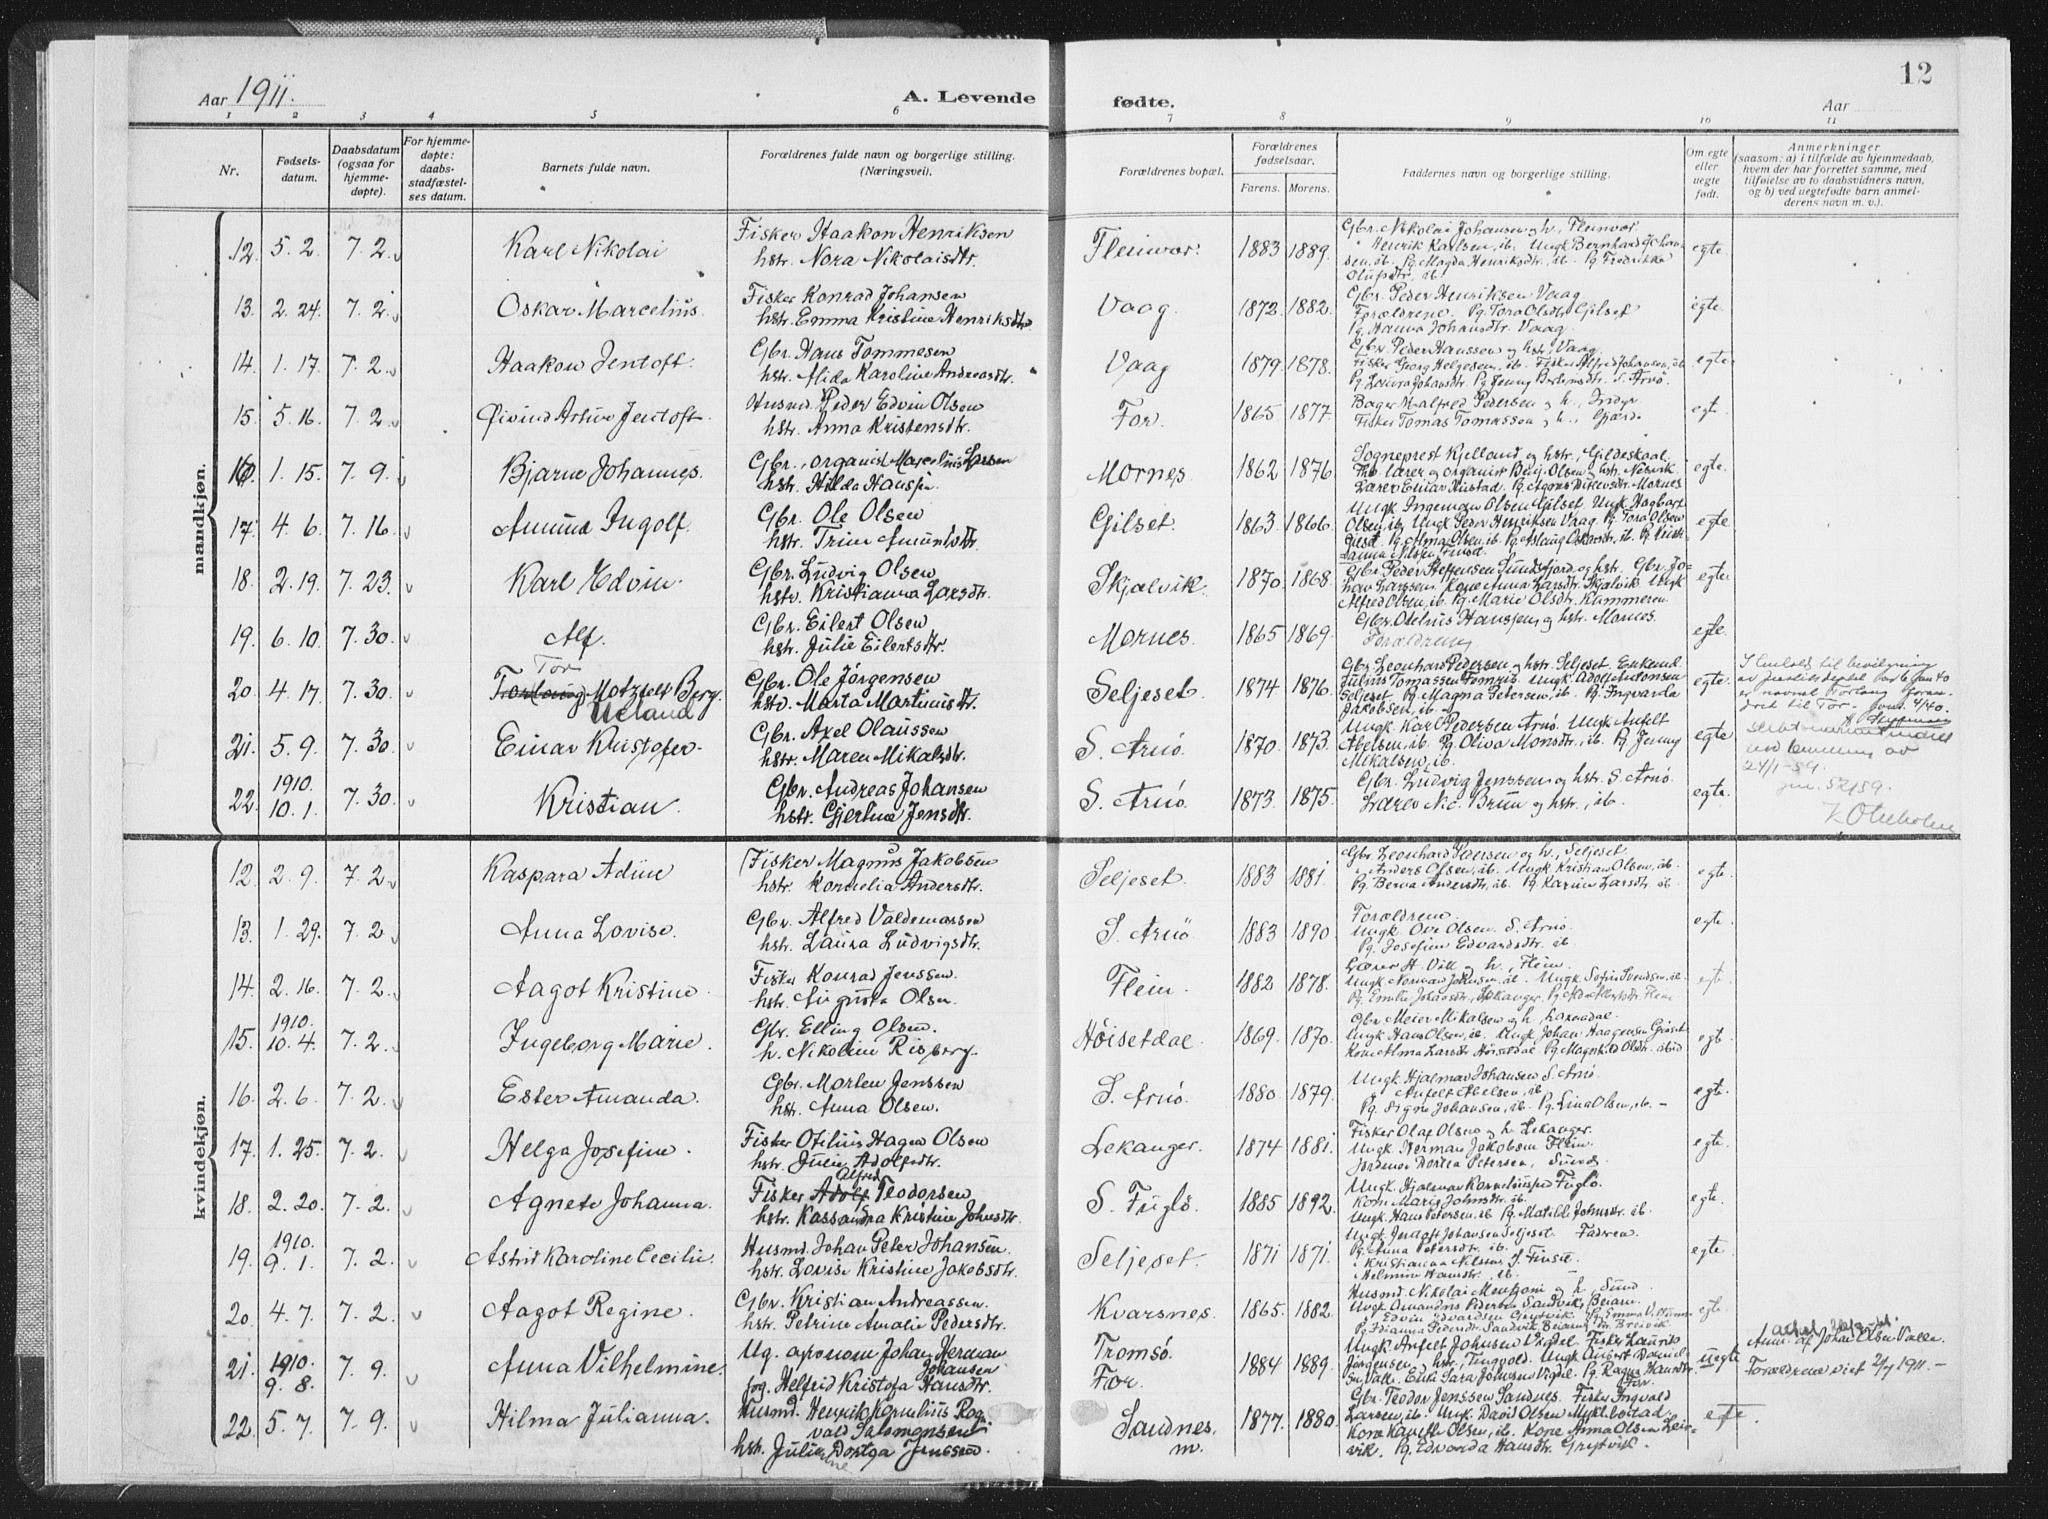 Aar 1911.
A. Levende
fødte.
Aar
12
1 2 3 4 5 6 7 8 9 10 11
Nr.
Fødsels-
datum.
Daabsdatum
(ogsaa for
hjemme-
døpte).
For hjemme-
døpte:
daabs-
stadfæstel-
ses datum.
Barnets fulde navn.
Forældrenes fulde navn og borgerlige stilling.
(Næringsvei).
Forældrenes bopæl.
Forældrenes
fødselsaar.
Farens. Morens.
Faddernes navn og borgerlige stilling.
Om egte
eller
uegte
født.
Anmerkninger
(saasom: a) i tilfælde av hjemmedaab,
hvem der har forrettet samme, med
tilføielse av to daabsvidners navn,
og b) ved uegtefødte barn anmel-
derens navn m. v.).
mandkjøn.
12. 5. 2. 7. 2. Karl Nikolai
Fisker Haakon Henriksen
hstr. Nora Nikolaisdtr.
Fleinvær. 1883 1889.
Gbr. Nikolai Johansen og h., Fleinvær.
Henrik Karlsen, ib. Ungk. Bernhard Johan-
sen, ib. Pg. Magda Henriksdtr. ib. Pg. Fredrikke
Olufsdtr. ib.
egte.
13. 2. 24. 7. 2. Oskar Marcelius.
Fisker Konrad Johansen
hstr. Emma Kristine Henriksdtr.
Vaag. 1872. 1882.
Gbr. Peder Henriksen Vaag
Forældrene. Pg. Tora Olsdtr. Gilset
Pg. Hanna Johansdtr. Vaag.
egte.
14. 1. 17. 7. 2. Haakon Jentoft.
Gbr. Hans Tommesen
hstr. Alida Karoline Andreasdtr.
Vaag 1879. 1878.
Gbr. Peder Hanssen og hstr., Vaag.
Fisker Georg Helgesen, ib. Fisker Alfred Johansen, ib.
Pg. Lovisa Johansdtr. Pg. Jenny S. Arnø.
egte.
15. 5. 16. 7. 2. Øivind Artur Jentoft.
Husmd. Peder Edvin Olsen
hstr. Anna Kristensdtr.
For. 1865 1877.
Bager Malfred Pedersen og h., Indyr
Fisker Tomas Tomassen og h.,
egt.
16. 1. 15. 7. 9. Bjarne Johannes.
Gbr., organist Marcelius Larsen
hstr. Hilda Hansen
Mornes. 1862 1876.
Sogneprest Kjelland og hstr., Gildeskaal.
lærer og organist Benj. Olsen og hstr. Nesvik
Lærer Einar Hustad. Pg. Agnes Mornes
egte.
17. 4. 6. 7. 16. Amund Ingolf.
Gbr. Ole Olsen
hstr. Trine Amundsdtr.
Gilset. 1863. 1866.
Ungk. Ingeman Olsen Gilset. Ungk. Hagbart
Olsen, ib. Ungk. Peder Henriksen Vaag. Pg. Tora Olsen
Gilset. Pg. Alma Olsen, ib. Pg. Aslaug Oskarsdtr. ib. Pg. Krist-
ianna Nilsen Finset.
egte
18. 2. 19. 7. 23. Karl Edvin.
Gbr. Ludvig Olsen
hstr. Kristianna Larsdtr.
Skjalvik. 1870. 1868.
Gbr. Peder Steffensen Sundsfjord og hstr. Gbr. Jo-
han Larssen. Kone Anna Larsdtr. Skjalvik. Ungk.
Alfred Olsen, ib. Pg. Marie Olsdtr. Kammeren.
egte.
19. 6. 10. 7. 30. Alf.
Gbr. Eilert Olsen
hstr. Julie Eilertsdtr.
Mornes. 1865 1869.
Gbr. Otelius Hanssen og hstr. Mornes.
Forældrene
egte.
20. 4. 17. 7. 30. Tor
Torlaug Motzfeldt Berg.
Ueland
Gbr. Ole Jørgensen
hstr. Marta Martinusdtr.
Seljeset. 1874 1876.
Gbr. Leonhard Pedersen og hstr. Seljeset. Enkemd.
Julius Tomassen Tomris. Ungk. Adolf Antonsen
Seljeset. Pg. Magna Petersen, ib. Pg. Ingvarda
Jakobsen, ib.
egte.
I henhold til bevilgning
av justisdeptet av 6 jan 40
er navnet Torlaug foran-
dret til Tor. Jour. 4/40.
21. 5. 9. 7. 30. Einar Kristofer.
Gbr. Axel Olaussen
hstr. Maren Mikalsdtr.
S. Arnø. 1870. 1873.
Ungk. Karl Pedersen Arnø. Ungk. Anfelt
Abelsen, ib. Pg. Oliva Monsdtr., ib. Pg. Jenny
Mikalsen, ib.
egte
24/1-59.
jnr. 52/59.
22. 1910.
10. 1. 7. 30. Kristian.
Gbr. Andreas Johansen
hstr. Gjertine Jensdtr.
S. Arnø. 1873. 1875.
Gbr. Ludvig Jenssen og hstr. S. Arnø.
Lærer Nic. Bruun og hstr., ib.
egte.
kvindekjøn.
12. 2. 9. 7. 2. Kaspara Adine
Fisker Magnus Jakobsen
hstr. Kornelia Andersdtr.
Seljeset. 1883 1881.
Gbr. Leonhard Pedersen og h., Seljeset.
Anders Olsen, ib. Ungk. Kristian Olsen, ib.
Pg. Berna Andersdtr., ib. Pg. Karine Larsdtr. ib.
egte.
13. 1. 29. 7. 2. Anna Lovise.
Gbr. Alfred Valdemassen
hstr. Laura Ludvigsdtr.
S. Arnø 1883 1890
Forældrene.
Ungk. Ove Olsen. S. Arnø.
Pg. Josefine Edvardsdtr. ib.
egte.
14. 2. 16. 7. 2. Aagot Kristine.
Fisker Konrad Jenssen.
hstr. Augusta Olsen.
Flein. 1882 1878.
Lærer H. Vik og h., Flein.
Ungk. Norman Jakobsen, ib. Ungk. Sofus Svendsen, ib.
Pg. Emilie Johansdtr., Lekanger. Flein
egt.
15. 1910.
10. 4. 7. 2. Ingeborg Marie.
Gbr. Elling Olsen.
h. Nikoline Risberg.
Høisetdal. 1869. 1870.
Gbr. Meier Mikalsen og h.,
Ungk. Hans Olsen, ib. Ungk. Johan Haagensen Gjøset
Kone Alma Larsdtr. Høisetdal Pg. Magnhild Olsdtr. ibid
egt.
16. 2. 6. 7. 2. Ester Amanda.
Gbr. Morten Jenssen
hstr. Anna Olsen.
S. Arnø. 1880. 1879.
Ungk. Hjalmar Johansen S. Arnø.
Anfelt Abelsen, ib
Pg. Signe Johansen, ib. Pg. Lina Olsen, ib. -
egte.
17. 1. 25. 7. 2. Helga Josefine.
Fisker Otelius Hagen Olsen
hstr. Julie Adolfsdtr.
Lekanger. 1874 1881.
Fisker Olaf Olsen og h. Lekanger.
Ungk. Herman Jakobsen Flein.
Jordmor Dortea Petersen,
egte.
18. 2. 20. 7. 2. Agnete Johanna.
Alfred
Fisker Adolf Teodorsen
hstr. Kassandra Kristine Johnsdtr.
S. Fuglø. 1885 1892.
Ungk. Hjalmar Korneliussen Fuglø.
Kone Marie Johnsdtr. ib.
Ungk. Hans Petersen, ib. Pg. Matilde Johnsdtr. ib.
egte.
19. 1910.
9. 1. 7. 2. Astrid Karoline Cecilie.
Husmd. Johan Peter Johansen.
hstr. Lovise Kristine Jakobsdtr.
Seljeset. 1871 1871.
Ungk. Jentoft Johansen Seljeset. Faderen.
Pg. Anna Petersdtr. ib.
Kristianna Nilssen, S. Finset.
Helmine Hansdtr., ib.
egte.
20. 4. 7. 7. 2. Aagot Regine.
Gbr. Kristian Andreassen.
hstr. Petrine Amalie Pedersdtr.
Kvarsnes. 1865. 1882.
Husmd. Nikolai Mentzoni og h., Sund.
Ungk. Amandus Pedersen Sandvik, Beiarn.
Edvin Edvardsen Grytvik.
Sandvik Beiarn
egte.
21. 1910.
9. 8. 7. 9. Anna Vilhelmine.
Ug. agronom Johan Herman
Johansen
pg. Helfrid Kristofa Hansdtr.
Tromsø.
For. 1884 1889.
Ungk. Anfelt Johansen Vigdel. Fisker Laurits
Jørgensen, hstr., Tingvold. Ungk. Aubert Daniel-
sen Valle. Enke Sara Johansen Vigdel. Pg. Ragna Hansdtr.
For.
uegte
Anm. af Johan Olsen Valle.
Forældrene viet 2/7 1911. -
22. 5. 7. 7. 9. Hilma Julianna.
Husmd. Henrik Kornelius Rog-
vald Salomonsen
hstr. Juline Dortea Jenssen.
Sandnes.
m. 1877. 1880.
Gbr. Teodor Jenssen Sandnes. Fisker Ingvald
Larsen, ib. Ungk. David Olsen Myklebostad.
Kone Olsen, ib. Kone Anna Olsen Leir-
vik. Pg. Edvarda Hansdtr. Grytvik.
egte.